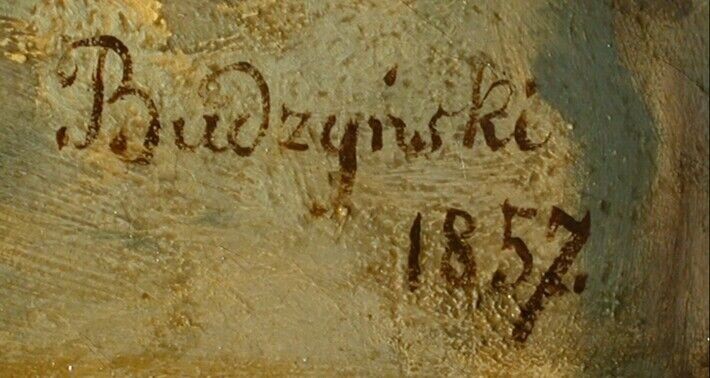 Budzyński
1857.